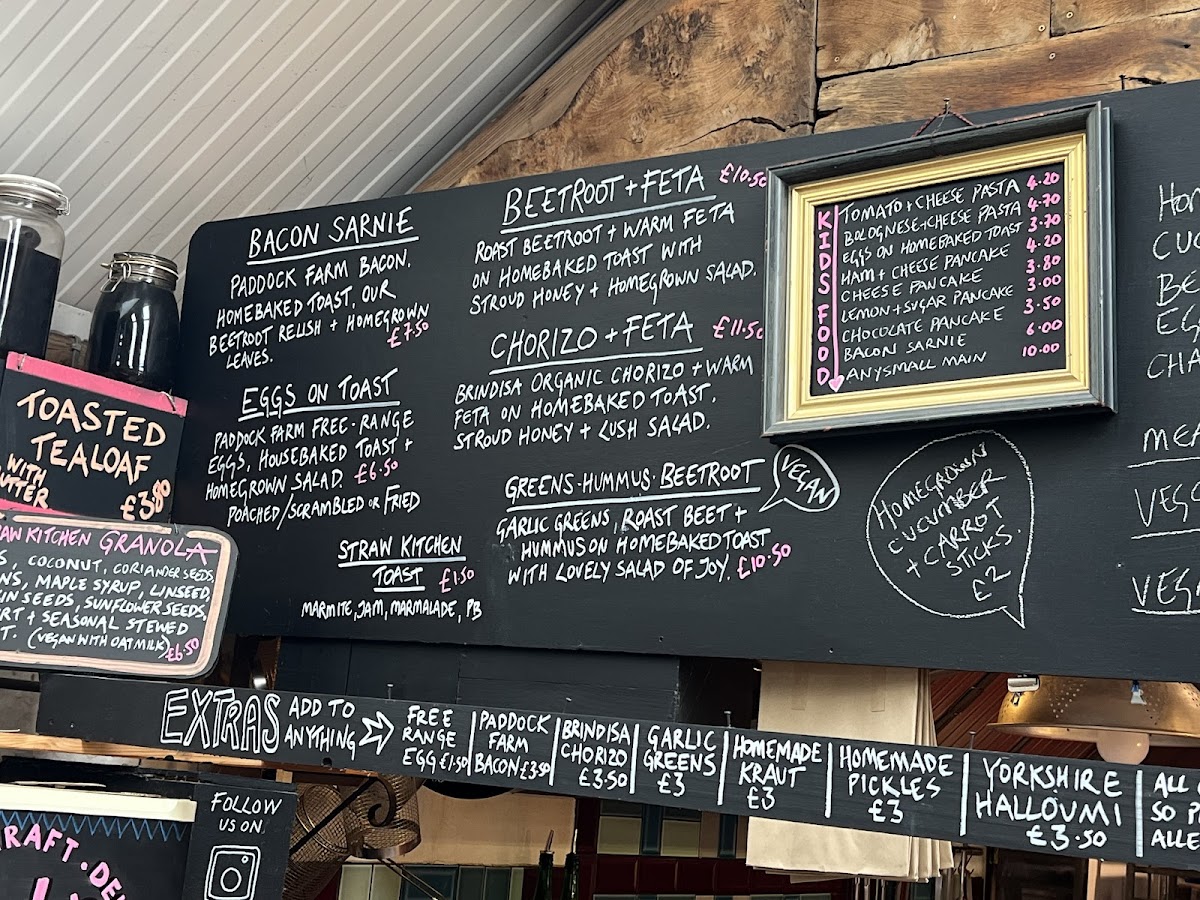 BACON SARNIE
PADDOCK FARM BACON.
HOMEBAKED TOAST, OUR
BEETROOT RELISH + HOMEGROWN
LEAVES. £7.50
EGGS ON TOAST
PADDOCK FARM FREE-RANGE
EGGS, HOUSEBAKED TOAST +
HOMEGROWN SALAD. £6.50
POACHED/SCRAMBLED OR FRIED
STRAW KITCHEN
TOAST £1.50
MARMITE, JAM, MARMALADE, PB
BEETROOT + FETA £10.50
ROAST BEETROOT + WARM FETA
ON HOMEBAKED TOAST WITH
STROUD HONEY + HOMEGROWN SALAD.
CHORIZO + FETA £11.50
BRINDISA ORGANIC CHORIZO + WARM
FETA ON HOMEBAKED TOAST.
STROUD HONEY + LUSH SALAD.
GREENS·HUMMUS·BEETROOT
VEGAN
GARLIC GREENS, ROAST BEET +
HUMMUS ON HOMEBAKED TOAST
WITH LOVELY SALAD OF JOY. £10.50
KIDS FOOD
TOMATO + CHEESE PASTA 4.20
BOLOGNESE + CHEESE PASTA 4.70
EGGS ON HOMEBAKED TOAST 3.70
HAM + CHEESE PANCAKE 4.20
CHEESE PANCAKE 3.80
LEMON + SUGAR PANCAKE 3.00
CHOCOLATE PANCAKE 3.50
BACON SARNIE 6.00
ANY SMALL MAIN 10.00
HOMEGROWN
CUCUMBER
+ CARROT
STICKS.
£2
MEA
VEG
VEGA
TOASTED
TEALOAF
WITH
UTTER £3.80
AW KITCHEN GRANOLA
S, COCONUT, CORIANDER SEEDS,
NS, MAPLE SYRUP, LINSEED,
IN SEEDS, SUNFLOWER SEEDS,
RT + SEASONAL STEWED
T. (VEGAN WITH OAT MILK) £6.50
EXTRAS ADD TO
ANYTHING
FREE
RANGE
EGG £1.50
PADDOCK
FARM
BACON £3.50
BRINDISA
CHORIZO
£3.50
GARLIC
GREENS
£3
HOMEMADE
KRAUT
£3
HOMEMADE
PICKLES
£3
YORKSHIRE
HALLOUMI
£3.50
ALL
SO P
ALLE
FOLLOW
US ON
RAFT·DE